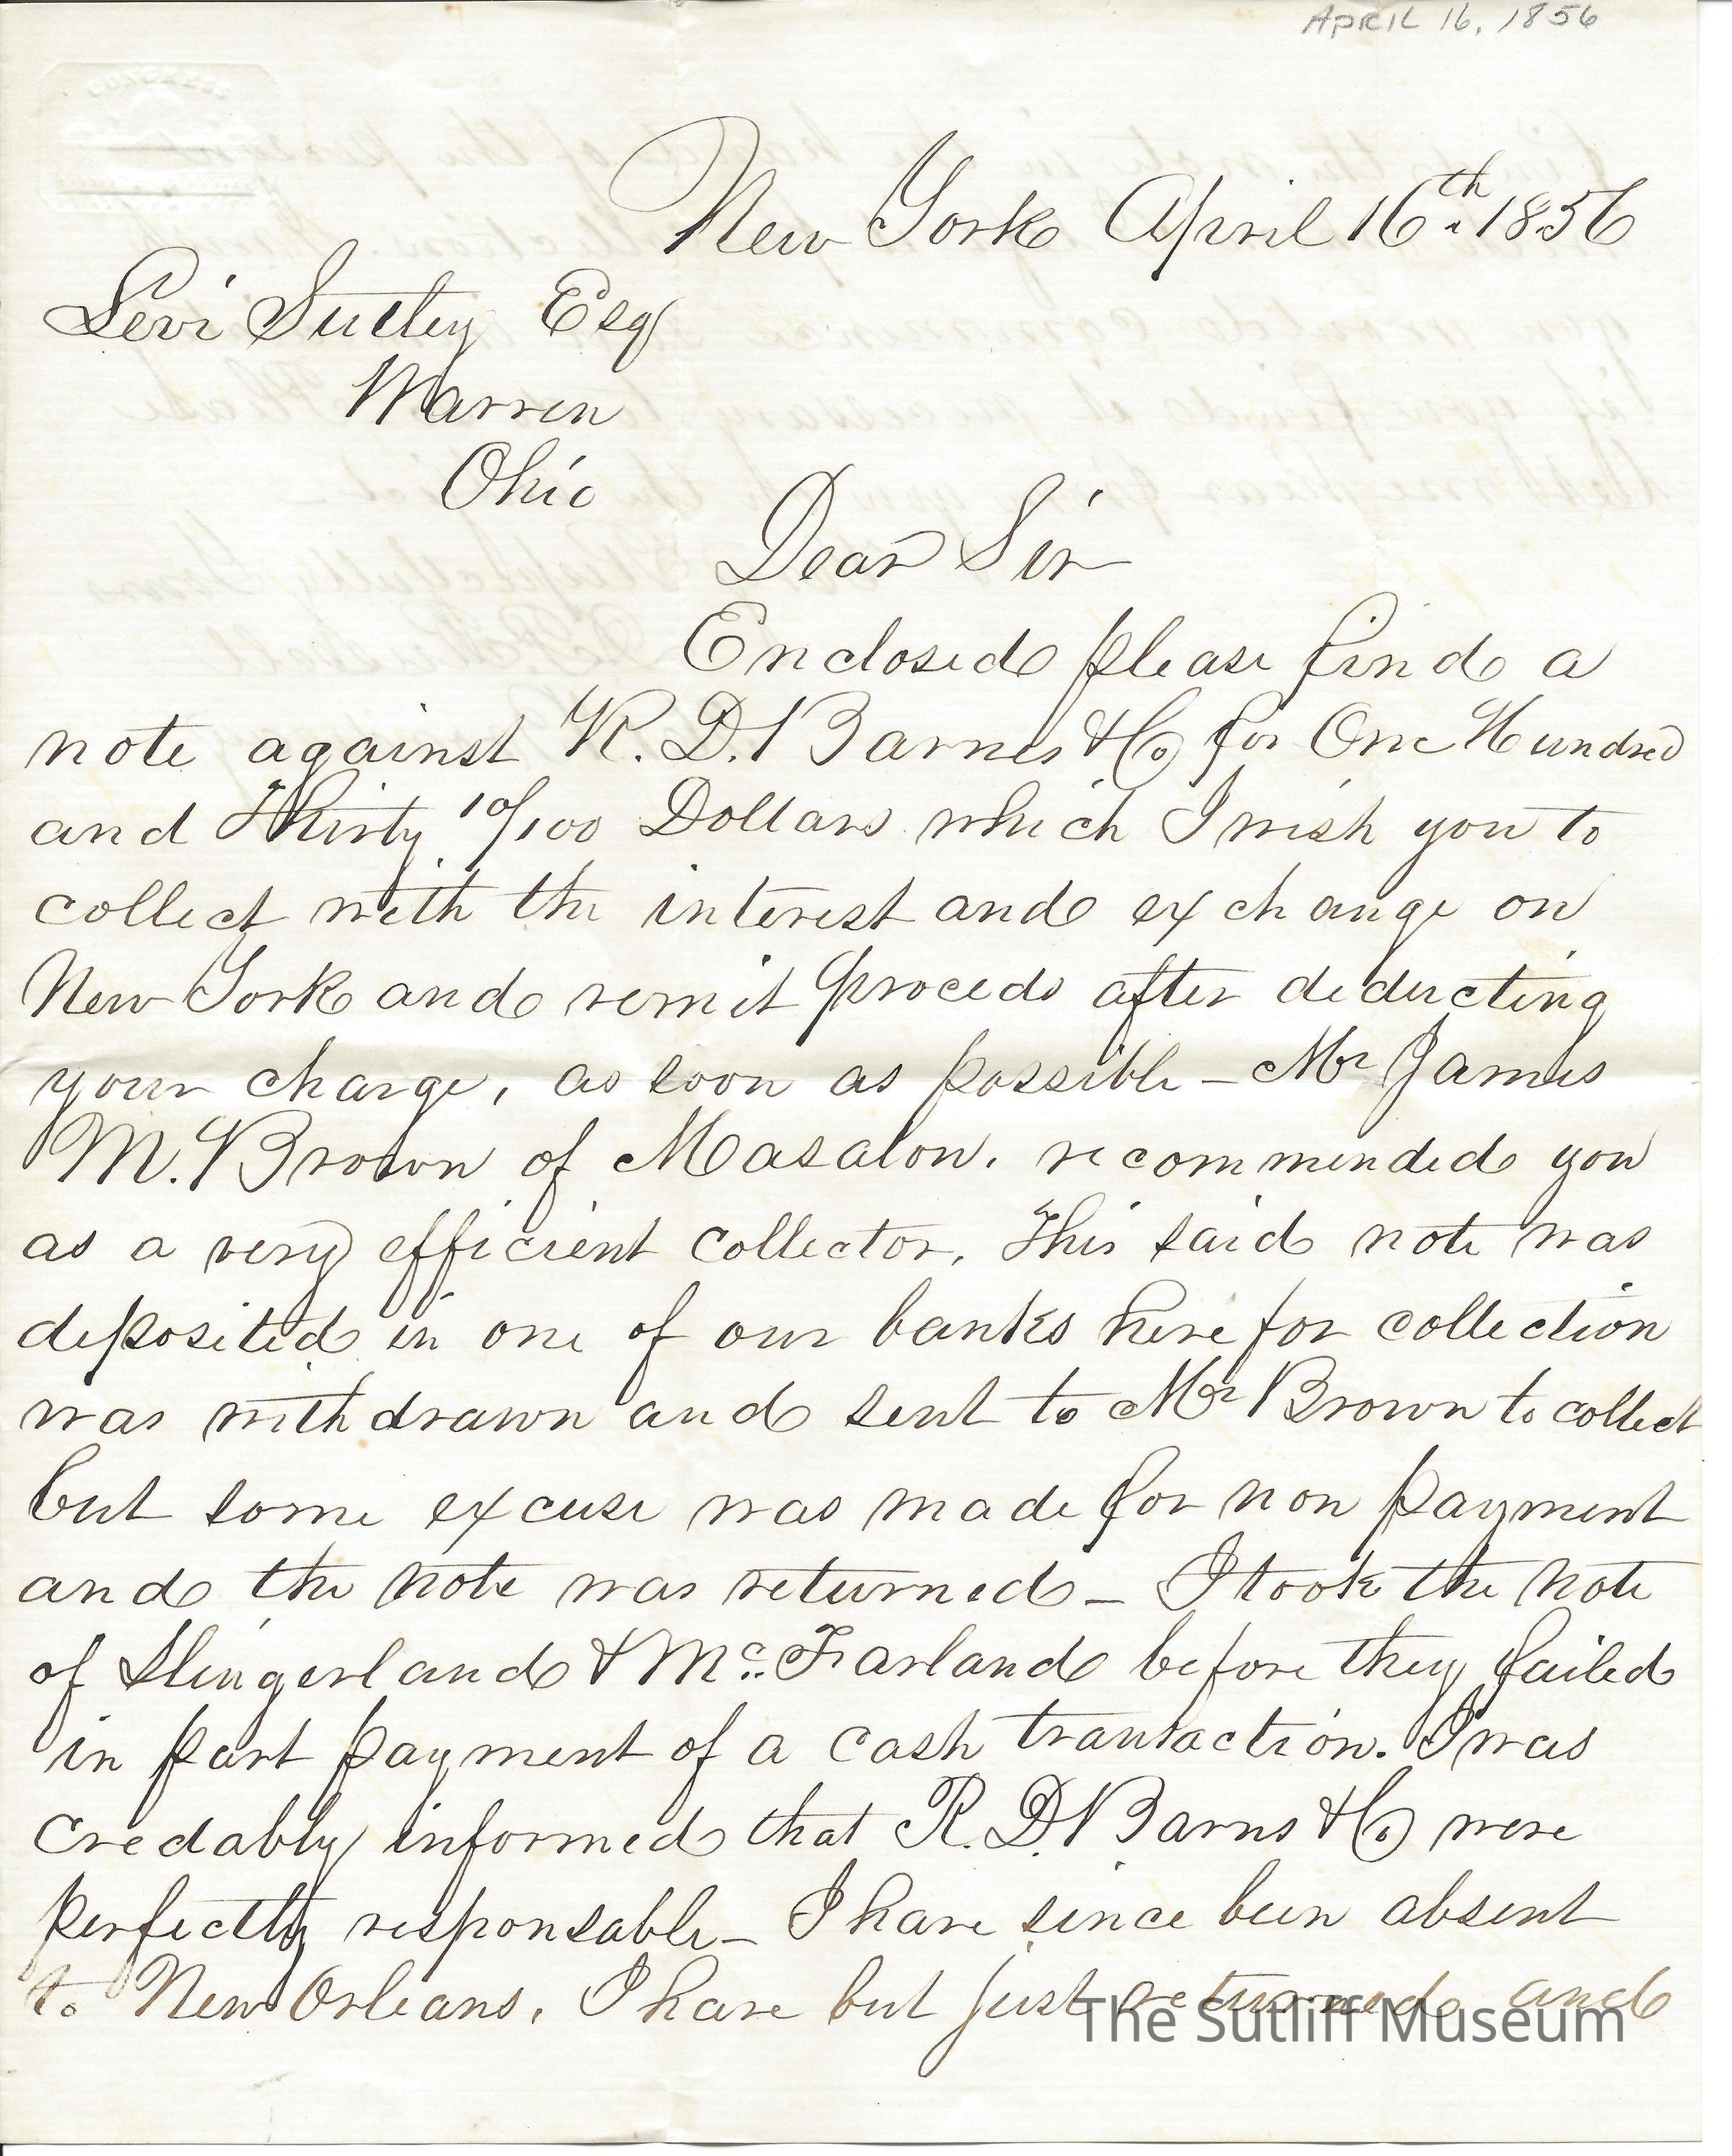 APRIL 16, 1856
New York April 16th. 1856
Levi Sutley Esq
Warren
Ohio
Dear Sir
Enclosed please find a
note against R. D. Barnes & Co for One Hundred
and Thirty 10/100 Dollars which I wish you to
collect with the interest and exchange on
New York and remit proceds after deducting
your charge, as soon as possible – Mr James
M. Brown of Masalon. recommended you
as a very efficient collector, This said note was
deposited in one of our banks here for collection
was withdrawn and sent to Mr Brown to collect
but some excuse was made for non payment
and the note was returned – I took the note
of Slingerland & Mc. Farland before they failed
in part payment of a cash transaction. I was
credably informed that R. D. Barns & Co were
perfectly responsable – I have since been absent
to New Orleans, I have but just returned and
The Sutliff Museum